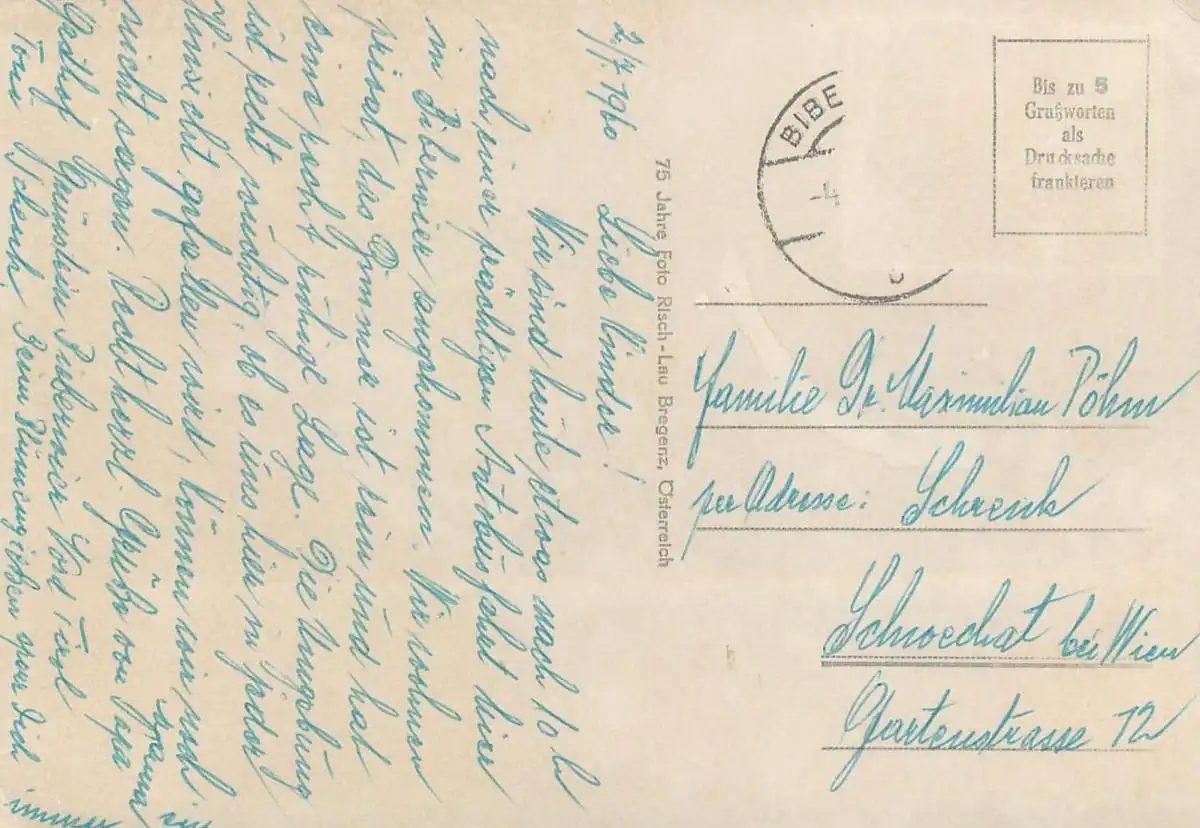 2/7 1960
Liebe Kinder!
Wir sind heute etwas nach 10 h
nach einer prächtigen Autobusfahrt hier
in Biberwier angekommen. Wir wohnen
privat, das Zimmer ist rein und hat
eine recht ruhige Lage. Die Umgebung
ist recht
ob es uns hier in jeder
Hinsicht gefallen wird, können wir noch
nicht sagen. Recht herzl. Grüße von Papa
Gasthof Grünstein Biberwier Post Tirol
Toni Schenk. Beim Blumengießen
immer
75 Jahre Foto Risch-Lau Bregenz, Österreich
BIBE
4.
Bis zu 5
Grußworten
als
Drucksache
frankieren
Familie Dr. Maximilian Böhm
per Adresse: Schrenk
Schwechat bei Wien
Gartenstrasse 12